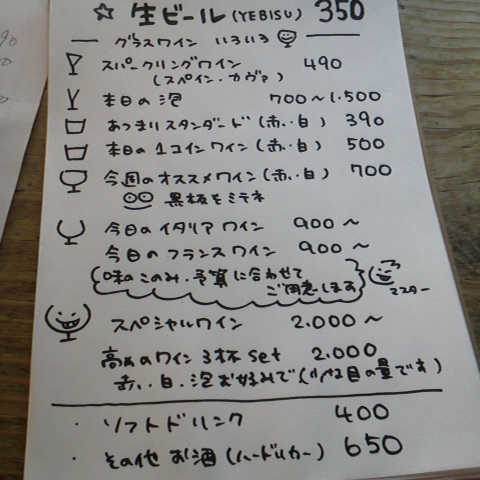 ☆ 生ビール (YEBISU) 350
グラスワイン いろいろ
スパークリングワイン 490
(スペイン・カヴァ)
本日の泡 700～1.500
あつまりスタンダード(赤・白) 390
本日の1コインワイン(赤・白) 500
今週のオススメワイン(赤・白) 700
黒板をミテネ
今日のイタリアワイン 900～
今日のフランスワイン 900～
味このみ・予算に合わせて
ご用意します
マスター
スペシャルワイン 2.000～
高めのワイン3杯set 2.000
赤・白・泡お好みで(少な目の量です)
・ソフトドリンク 400
・その他 お酒(ハードリカー) 650